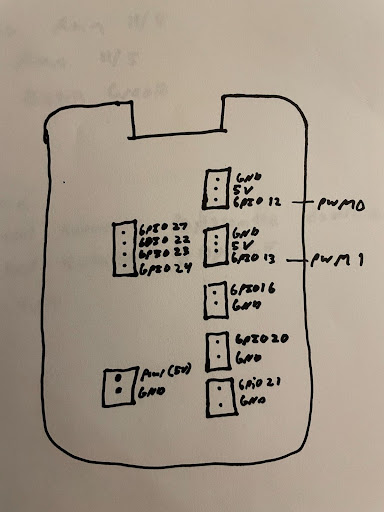 GND
5V
GPIO 12 — PWM0
GPIO 27
GPIO 22
GPIO 23
GPIO 24
GND
5V
GPIO 13 — PWM 1
GPIO16
GND
GPIO 20
GND
(5V)
GND
GPIO 21
GND